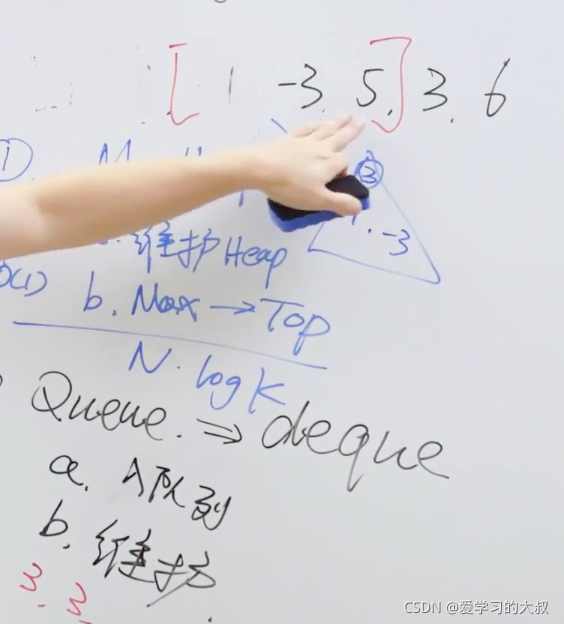 [ 1 -3. 5.] 3. 6
③
. -3
维护 Heap
O(1) b. Max → Top
N. logK
Queue. ⇒ deque
a. 入队列
b. 维护
3. 3.
CSDN @爱学习的大叔